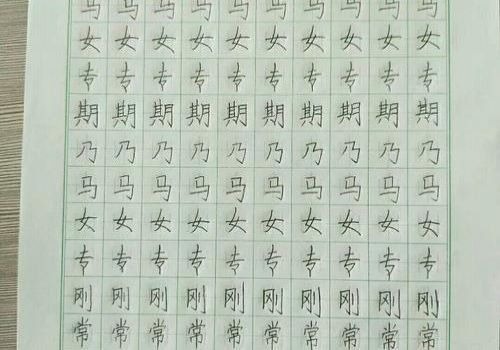 马马马马马马马马马马
女女女女女女女女女女
专专专专专专专专专专
期期期期期期期期期期
乃乃乃乃乃乃乃乃乃乃
马马马马马马马马马马
女女女女女女女女女女
专专专专专专专专专专
刚刚刚刚刚刚刚刚刚刚
常常常常常常常常常常